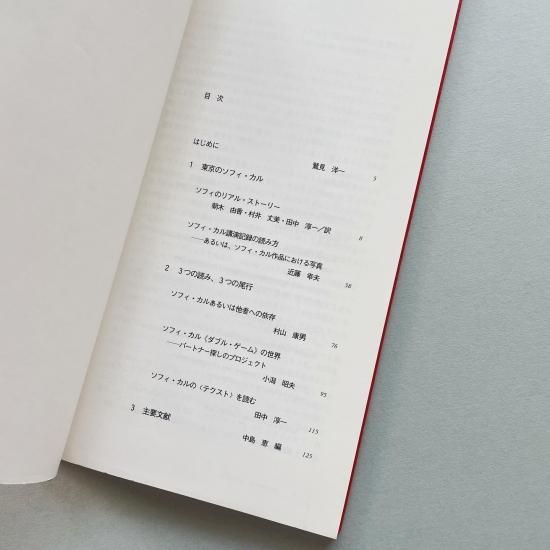 目 次
はじめに 鷲見 洋一 5
1 東京のソフィ・カル
ソフィのリアル・ストーリー
朝木 由香・村井 丈美・田中 淳一／訳 8
ソフィ・カル講演記録の読み方
——あるいは、ソフィ・カル作品における写真
近藤 幸夫 58
2 3つの読み、3つの尾行
ソフィ・カルあるいは他者への依存
村山 康男 76
ソフィ・カル〈ダブル・ゲーム〉の世界
——パートナー探しのプロジェクト
小潟 昭夫 95
ソフィ・カルの〈テクスト〉を読む
田中 淳一 115
3 主要文献
中島 恵 編 125